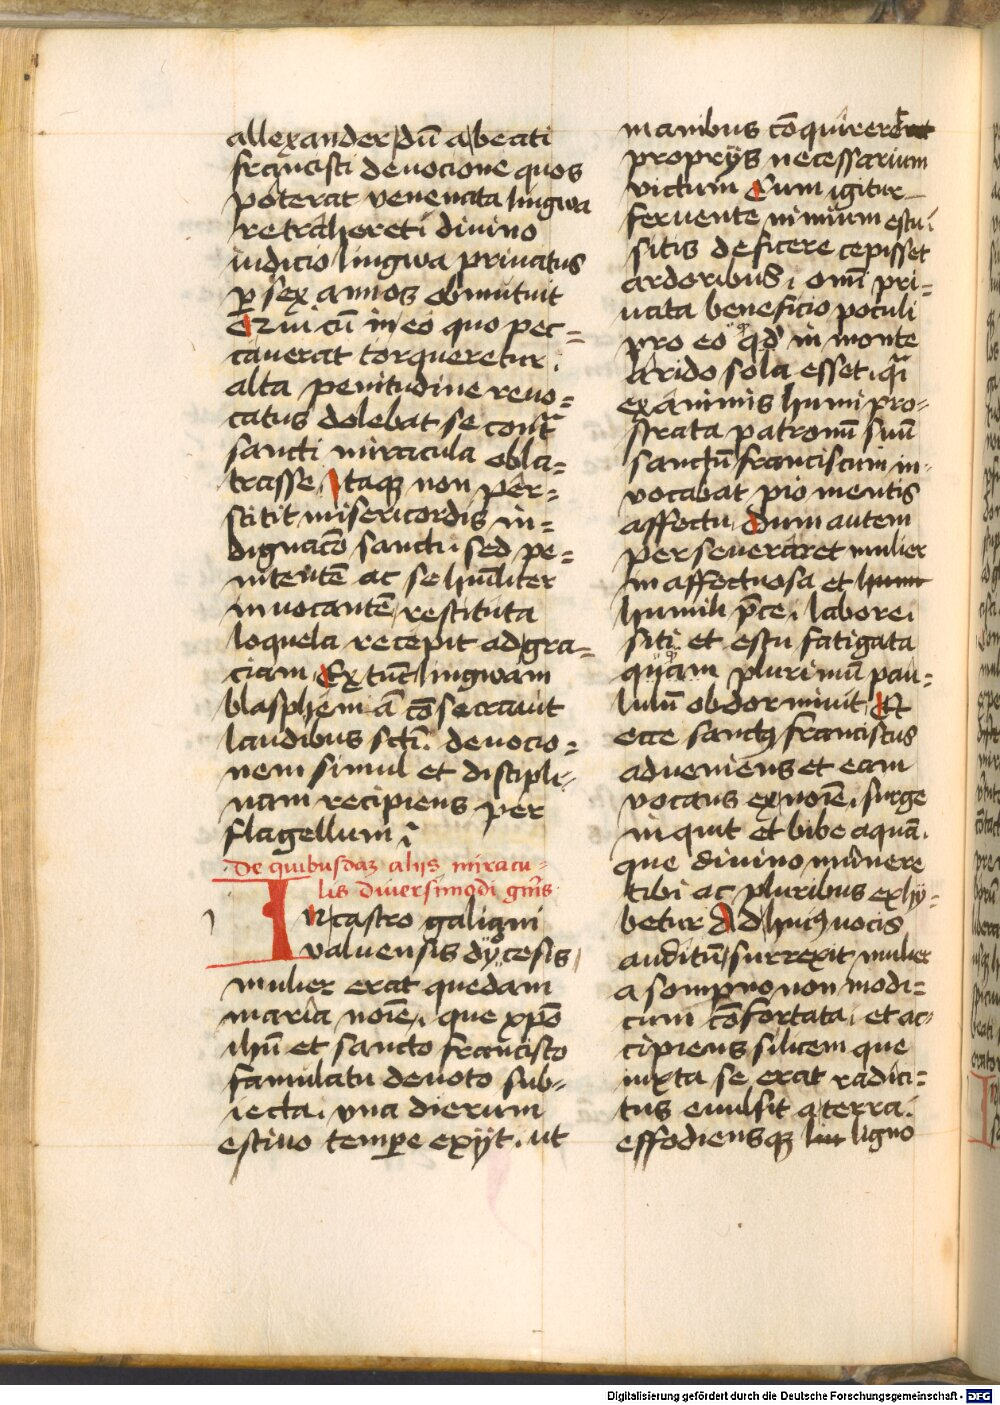 allexander dū a beati
francisci deuocione quos
poterat venenata lingwa
retraheret i diuino
iudicio lingwa priuatus
ꝑ sex annos obmutuit
Qui cū in eo quo pec=
cauerat torqueretur.
alta penitudine reuo=
catus dolebat se contᷓ
sancti miracula obla=
trasse Itaqꝫ non per=
stitit misericordis in=
dignacō sancti. sed pe=
nitentē ac se hūiliter
inuocantē restituta
loquela recepit ad gra=
ciam Ex tūc lingwam
blasphemā cōsecrauit
laudibus scti. deuocio=
nem simul et discipli=
nam recipiens per
flagellum
De quibusdaꝫ alijs miracu=
lis diuersimodi gnis
In castro galigni
valuensis dyocesis
mulier erat quedam
maria noīe. que xp̄o
ihū et sancto francisco
famulatu deuoto sub=
iecta. vna dierum
estiuo tempe exijt. ut
manibus cōquireret
proprijs necessarium
victum Cum igitur
feruente nimium estu
sitis deficere cepisset
ardoribus i omī pri=
uata beneficio poculi
pro eo qd in monte
arido sola esset. qᷓi
exanimis humi pro=
strata patronū suū
sanctū franciscum in=
vocabat pio mentis
affectu. dum autem
perseueraret mulier
in affectuosa et humi
humili p̄ce. labore.
siti et estu fatigata
quam plurimū pau=
lulū obdormiuit Et
ecce sanctꝰ franciscus
adueniens et eam
vocans ex noīe. surge
inquit et bibe aquā.
que diuino munere
tibi ac pluribus exhy=
betur Ad huiꝰ vocis
auditū surrexit mulier
a sompno non modi=
cum cōfortata. et ac=
cipiens silicem que
iuxta se erat radici=
tus euulsit a terra.
effodiensqꝫ ligno
Digitalisierung gefördert durch die Deutsche Forschungsgemeinschaft - DFG